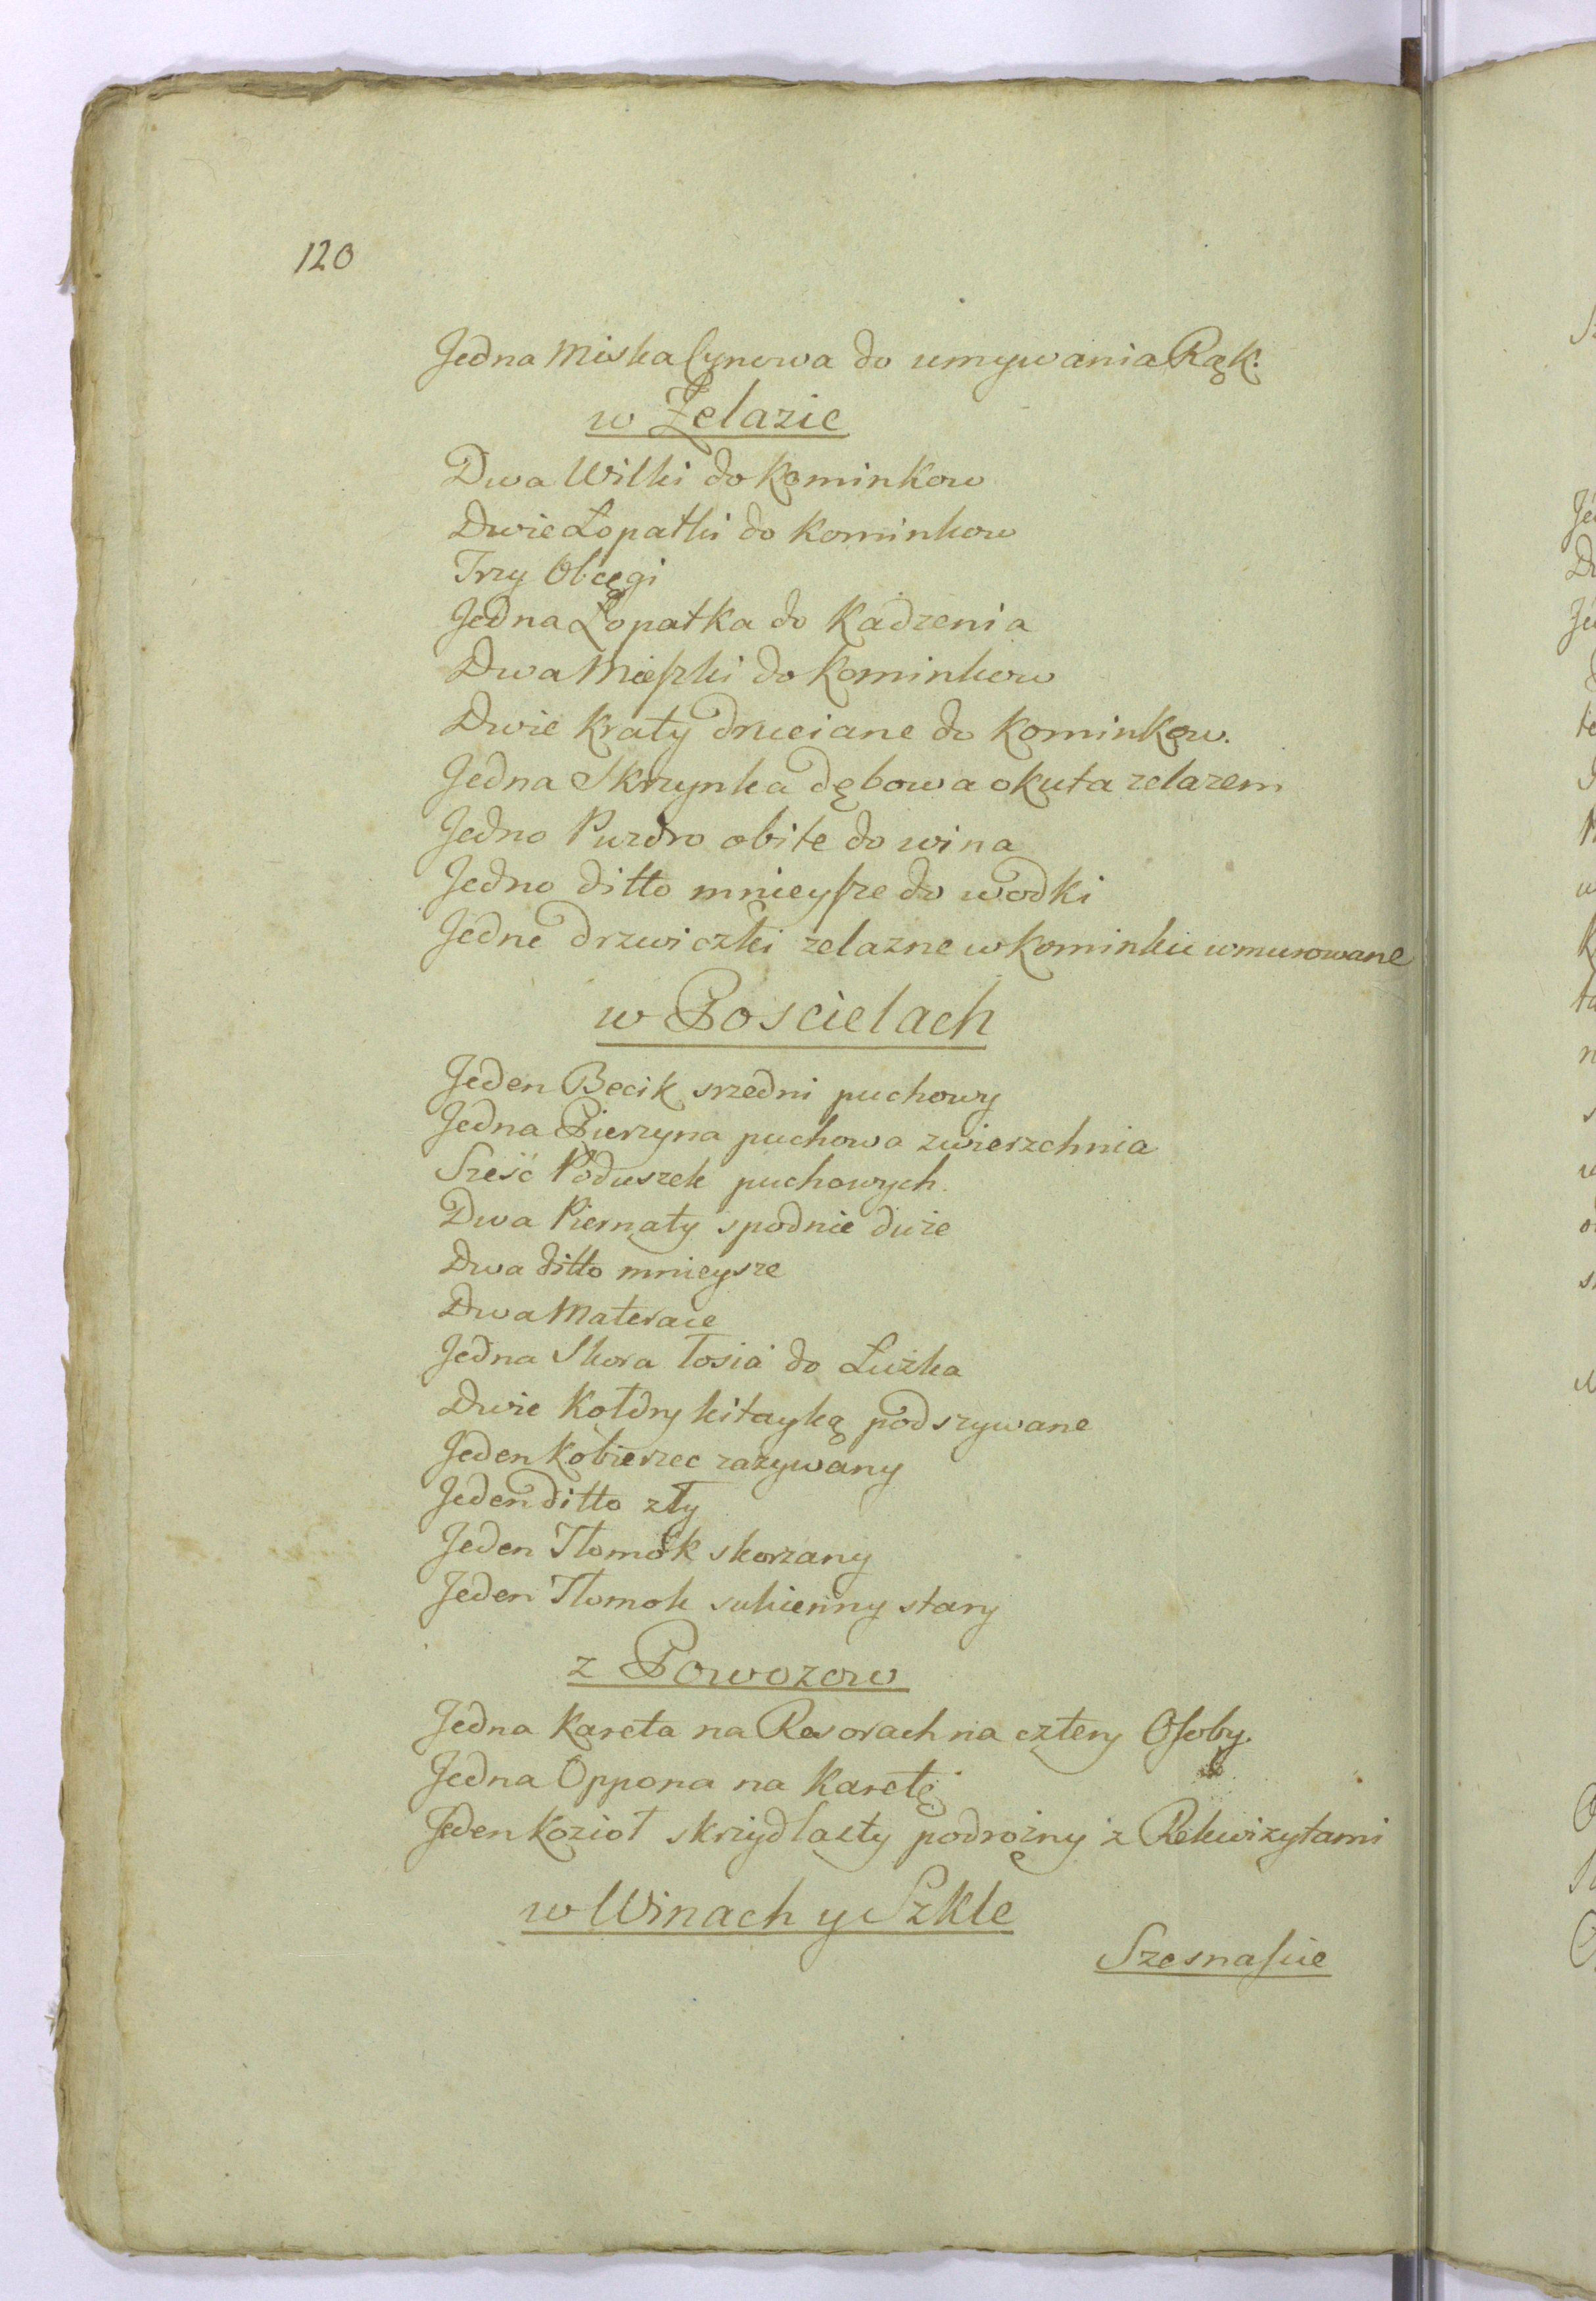 120
Jedna Miska Cynowa do umywania Rąk.
w Żelazie
Dwa Wilki do Kominkow
Dwie Łopatki do Kominkow
Trzy Obcęgi
Jedna Łopatka do Kadzenia
Dwa Mieſzki do Kominkow
Dwie Kraty druciane do Kominkow.
Jedna Skrzynka dębowa okuta zelazem
Jedno Puzdro obite do wina
Jedno ditto mnieyſze do wodki
Jedne drzwiczki zelazne w Kominku wmurowane
w Poscielach
Jeden Becik srzedni puchowy
Jedna Pierzyna puchowa zwierzchnia
Sześć Poduszek puchowych
Dwa Piernaty spodnie duże
Dwa ditto mnieysze
Dwa Materace
Jedna Skora łosia do Łużka
Dwie Kołdry kitayką podszywane
Jeden Kobierzec zażywany
Jeden ditto zły
Jeden Tłomok skorzany
Jeden Tłomok sukienny stary
z Powozow
Jedna Kareta na Resorach na cztery Oſoby.
Jedna Oppona na Karetę
Jeden Kozioł skrzydlasty podrożny z Rekwizytami
w Winach y Szkle
Szesnaſcie